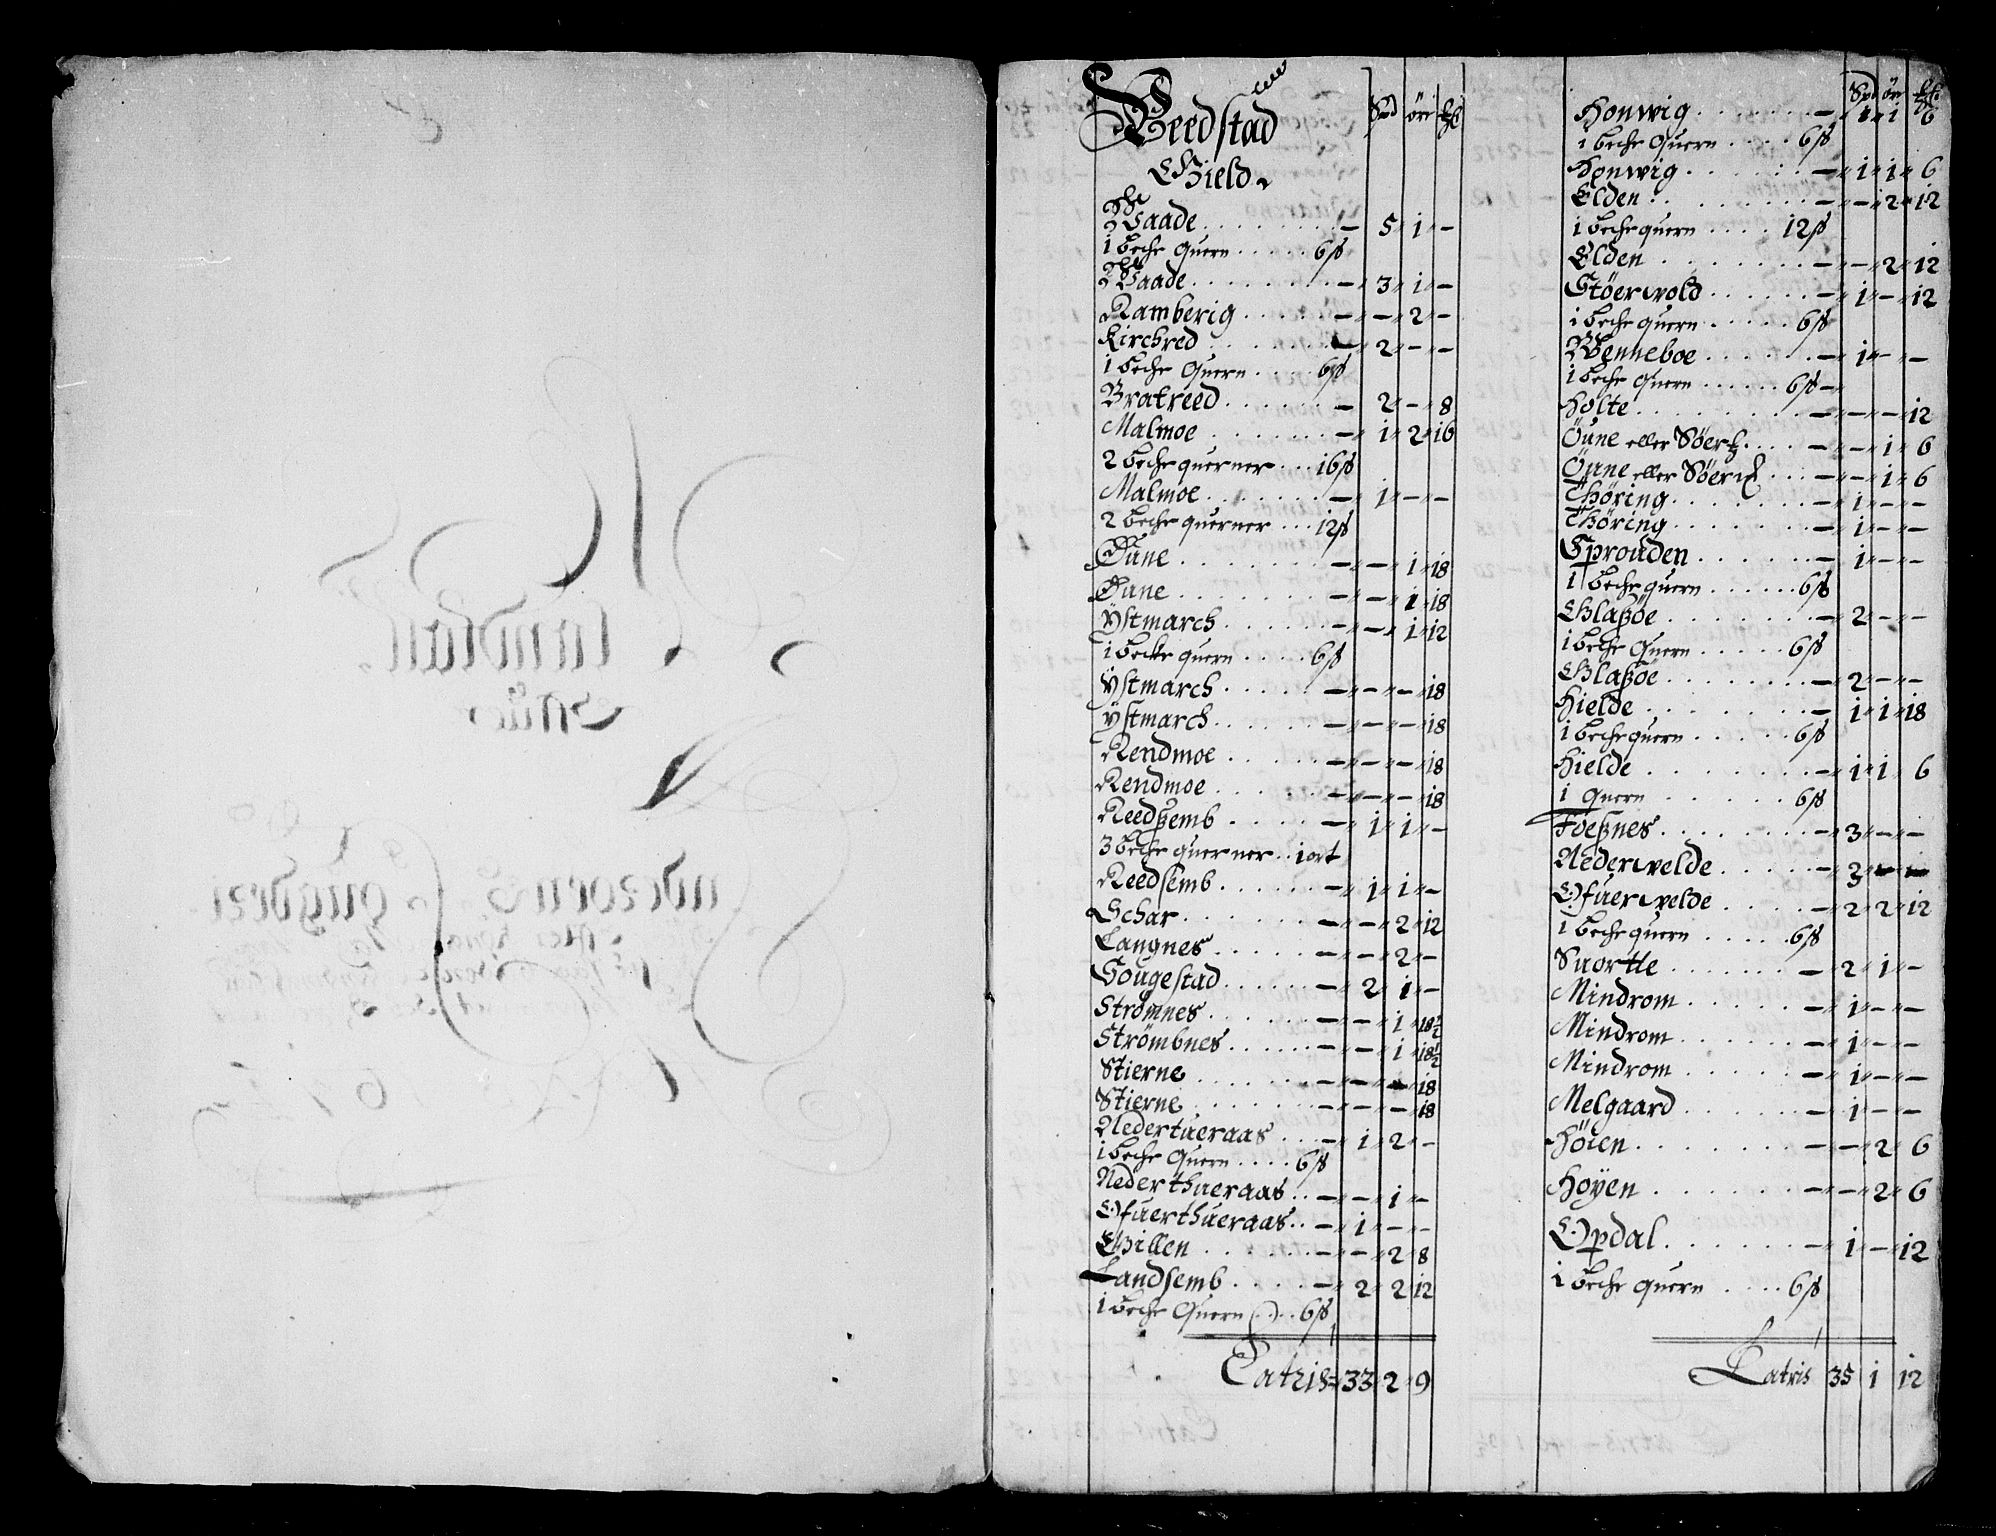 Beedstad
Gield
Spd öre ℔
Waade . . . . . . . . — 5 " 1 " —
1 beche Quern . . . . . 6 ß
Waade . . . . . . . . — " 3 " 1 " —
Ramberig . . . . . . — " — " 2 " —
Kirchred . . . . . . . — " 2 " — " —
1 beche Quern . . . . 6 ß
Bratreed . . . . . . . — 2 " — " 8
Malmoe . . . . . . . — " 1 " 2 " 16
2 beche querner . . . 16 ß
Malmoe . . . . . . . — " 1 " — " —
2 beche querner . . . 12 ß
Öune . . . . . . . . — " — " 1 " 18
Öune . . . . . . . . — " — " 1 " 18
Ÿstmarch . . . . . . — " — " 1 " 12
1 becke quern . . . . 6 ß
Ÿstmarch . . . . . . — " — " — " 18
ÿstmarch . . . . . . — " — " — " 18
Rendmoe . . . . . . — " — " — " 18
Rendmoe . . . . . . — " — " — " 18
Reedßemb . . . . . — " 1 " 1 " —
3 beche querner . . 1 ort
Reedsemb . . . . . . — " 1 " 1 " —
Schar . . . . . . . . — " — " 2 " 12
Langnes . . . . . . — " — " 2 " —
Gougestad . . . . . . — " 2 " 1 " —
Strömnes . . . . . . . — " — " 1 " 18½
Strömbnes . . . . . . — " — " 1 " 18½
Stierne . . . . . . . — " — " — " 18
Stierne . . . . . . . — " — " — " 18
Nedertueraas . . . — " 1 " 2 " —
1 beche Quern . . . . 6 ß
Nederthueraas . . — " — " 1 " —
Ofuerthueraas . . — " 1 " — " —
Gillen . . . . . . — " — " 2 " 8
Landsemb . . . . . — " 2 " 2 " 12
1 beche Quern . . . 6 ß
Latris = 33 " 2 " 9
Spd öre ℔
Honwig . . . . . . . — " 1 " 1 " 6
1 beche Quern . . . . 6 ß
Honwig . . . . . . — " 1 " 1 " 6
Elden . . . . . . . — " — " 2 " 12
1 beche quern . . . . 12 ß
Elden . . . . . . . — " — " 2 " 12
Stöerwold . . . . . . — " 1 " — " 12
1 beche quern . . . . . 6 ß
Wenneboe . . . . . . — " 1 " — " —
1 beche Quern . . . . . . 6 ß —
Holte . . . . . . . . . — " — " — " 12
Öune eller Söer . . . . — " — " 1 " 6
Öune eller Söer . . . — " — " 1 " 6
Thöring . . . . . . . — " 1 " — " —
Thöring . . . . . . . — " 1 " — " —
Sprouden . . . . . . — " 1 " — " —
1 beche quern . . . . . . 6 ß
Glaßöe . . . . . . . — " 2 " — " —
1 beche Quern . . . . . 6 ß
Glaßöe . . . . . . . — " 2 " — " —
Hielde . . . . . . . — " 1 " 1 " 18
1 beche quern . . . . . 6 ß
Hielde . . . . . . . — " 1 " 1 " 6
1 Quern . . . . . . 6 ß
Foeßnes . . . . . . . — " 3 " — " —
Nederwelde . . . . . — " 3 " — " —
Ofuerwelde . . . . . — " 2 " 2 " 12
1 beche quern . . . . . . 6 ß
Suortte . . . . . . . — " 2 " 1 " —
Mindrom . . . . . . — " 1 " — " —
Mindrom . . . . . . — " 1 " — " —
Mindrom . . . . . . — " 1 " — " —
Melgaard . . . . . . — " 1 " — " —
Höien . . . . . . . . — " — " 2 " 6
Hoÿen . . . . . . . — " — " 2 " 6
Opdal . . . . . . . — " 1 " — " 12
1 beche quern . . . . 6 ß
Latris 35 1 12